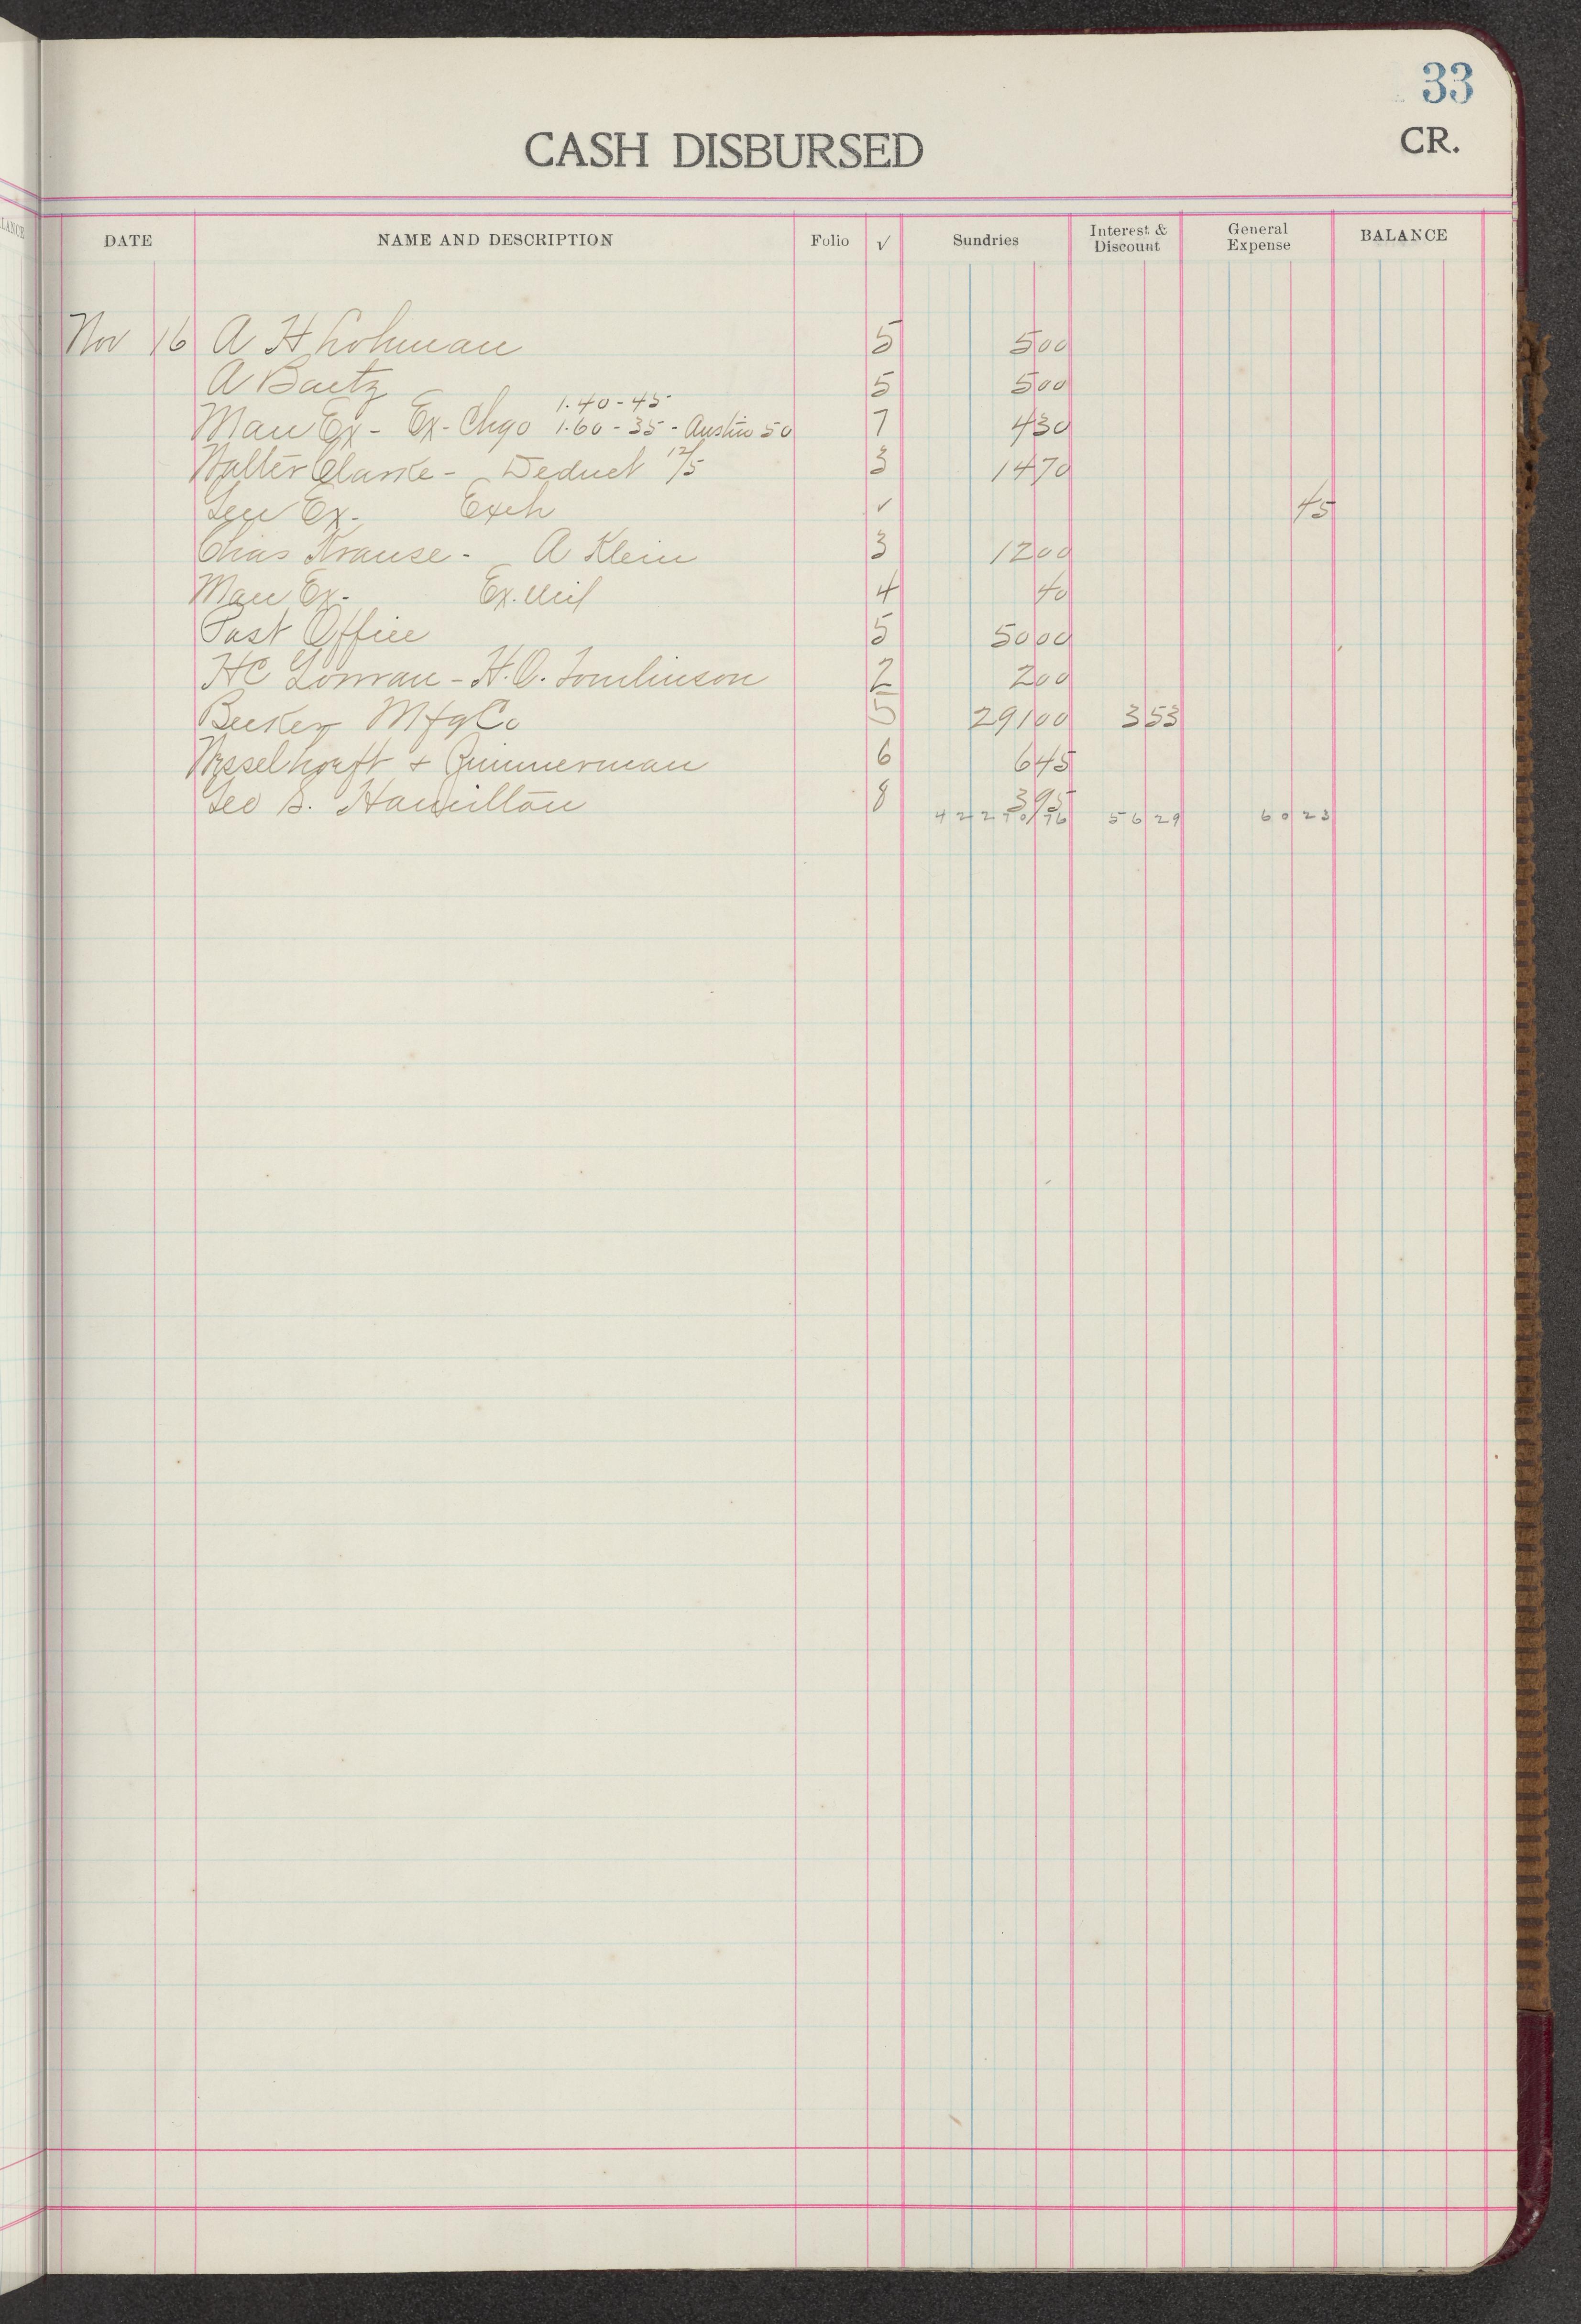 33
CASH DISBURSED CR.
DATE NAME AND DESCRIPTION Folio √ Sundries Interest & Discount General Expense BALANCE
Nov 16 A H Lohman 5 500
A Baetz 5 500
1.40-45
Man Ex - Ex-Chgo 1.60-35-Austin 50 7 430
Walter Clarke - Deduct 12/5 3 1470
Gen Ex. Exch ✓ 45
Chas Krause - A Klein 3 1200
Man Ex. Ex. Mil 4 40
Post Office 5 5000
HC - H.O. Tomlinson 2 200
Becker Mfg Co 5 29100 353
Wesselhoeft & Zimmerman 6 645
Geo S. Hamilton 8 395
42270 76 56 29 60 23
LANCE